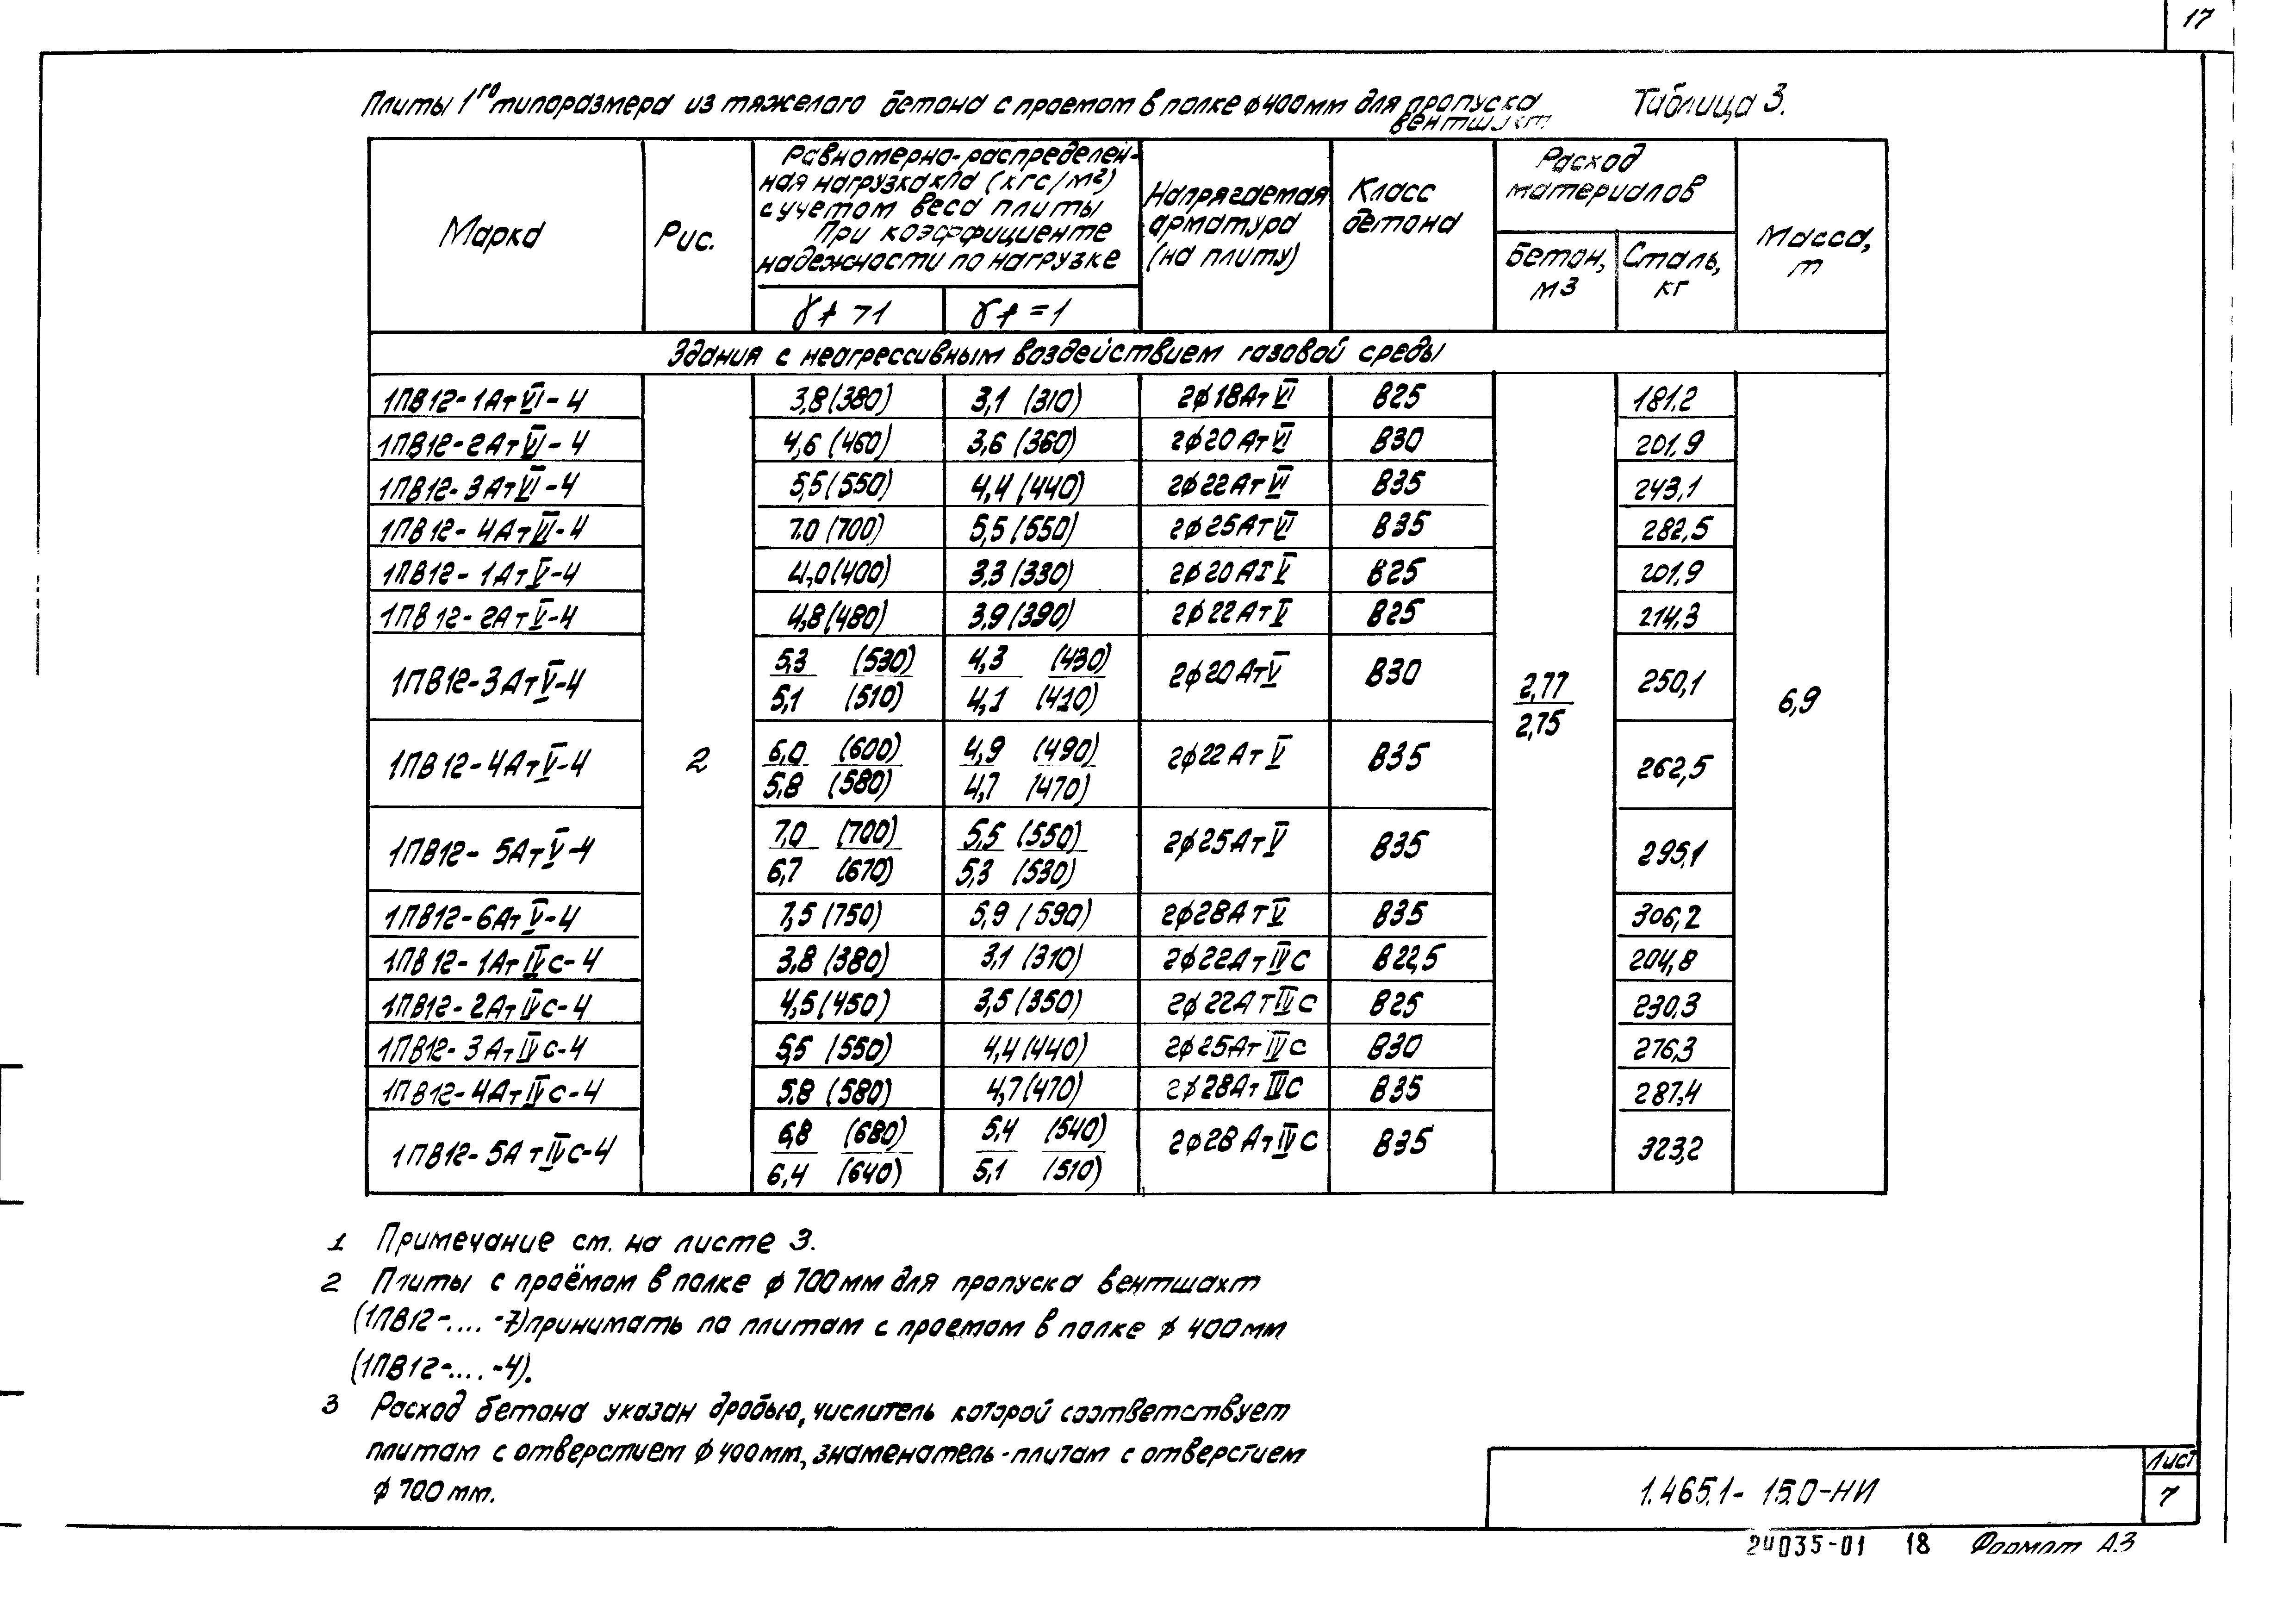 17
Плиты 1го типоразмера из тяжелого бетона с проемом в полке ϕ400мм для пропуска
вентшахт
Таблица 3.
Марка
Рис.
Равномерно-распределен-
ная нагрузка кПа (кгс/м²)
с учетом веса плиты
При коэффициенте
надежности по нагрузке
γf >1
γf =1
Напрягаемая
арматура
(на плиту)
Класс
бетона
Расход
материалов
Бетон,
м3
Сталь,
кг
Масса,
т
Здания с неагрессивным воздействием газовой среды
1ПВ12-1АтVI-4 3,8(380) 3,1 (310) 2ϕ18АтVI В25 181,2
1ПВ12-2АтVI-4 4,6 (460) 3,6 (360) 2ϕ20АтVI В30 201,9
1ПВ12-3АтVI-4 5,5(550) 4,4 (440) 2ϕ22АтVI В35 243,1
1ПВ12-4АтVI-4 7.0 (700) 5,5 (550) 2ϕ25АтVI В35 282,5
1ПВ12-1АтV-4 4,0(400) 3,3 (330) 2ϕ20АтV В25 201,9
1ПВ12-2АтV-4 4,8(480) 3,9(390) 2ϕ22АтV В25 214,3
1ПВ12-3АтV-4 5,3 (530) 4,3 (430) 2ϕ20АтV В30 250,1
5,1 (510) 4,1 (410)
2,77
2,75
6,9
2
1ПВ12-4АтV-4 6,0 (600) 4,9 (490) 2ϕ22АтV В35 262,5
5,8 (580) 4,7 (470)
1ПВ12-5АтV-4 7,0 (700) 5,5 (550) 2ϕ25АтV В35 295,1
6,7 (670) 5,3 (530)
1ПВ12-6АтV-4 7,5 (750) 5,9 (590) 2ϕ28АтV В35 306,2
1ПВ12-1АтIVС-4 3,8 (380) 3,1 (310) 2ϕ22АтIVС В22,5 204,8
1ПВ12-2АтIVС-4 4,5(450) 3,5 (350) 2ϕ22АтIVС В25 230,3
1ПВ12-3АтIVС-4 5,5 (550) 4,4(440) 2ϕ25АтIVС В30 276,3
1ПВ12-4АтIVС-4 5,8 (580) 4,7(470) 2ϕ28АтIVС В35 287,4
1ПВ12-5АтIVС-4 6,8 (680) 5,4 (540) 2ϕ28АтIVС В35 323,2
6,4 (640) 5,1 (510)
1 Примечание см. на листе 3.
2 Плиты с проёмом в полке ϕ 700мм для пропуска вентшахт
(1ПВ12-.... -7) принимать по плитам с проемом в полке ϕ 400мм
(1ПВ12-.... -4).
3 Расход бетона указан дробью, числитель которой соответствует
плитам с отверстием ϕ 400мм, знаменатель-плитам с отверстием
ϕ 700мм.
1.465.1- 15.0-НИ
Лист
7
24035-01 18 Формат А3